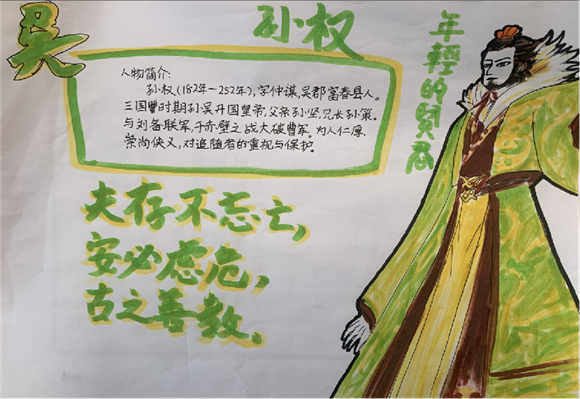 吴
孙权
年輕的賢君
人物简介:
孙权(182年-252年),字仲谋,吴郡富春县人。
三国时期孙吴开国皇帝,父亲孙坚,兄长孙策。
与刘备联军,于赤壁之战大破曹军,为人仁厚、
崇尚侠义,对追随者的重视与保护。
夫存不忘亡,
安必虑危,
古之善教.